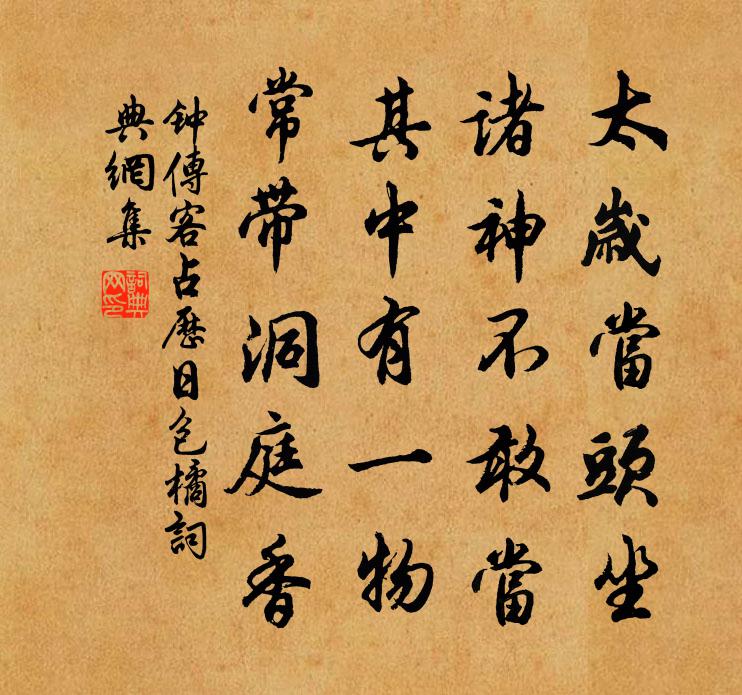 太歲當頭坐
諸神不敢當
其中有一物
常帶洞庭香
钟傳客占歷日包橘詞
典網集
詞典
网印